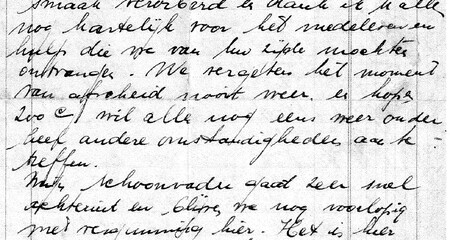 smaak verorberd en dank ik U allen
nog hartelijk voor het medeleven en
hulp die we van Uw zijde mochten
ontvangen. We vergeten het moment
van afscheid nooit weer, en hopen
zoo U wil alle nog eens weer onder
heel andere omstandigheden aan te
treffen.
Mijn schoonvader gaat zeer snel
achteruit en blijven we nog voorlopig
met vergunning hier. Het is hier